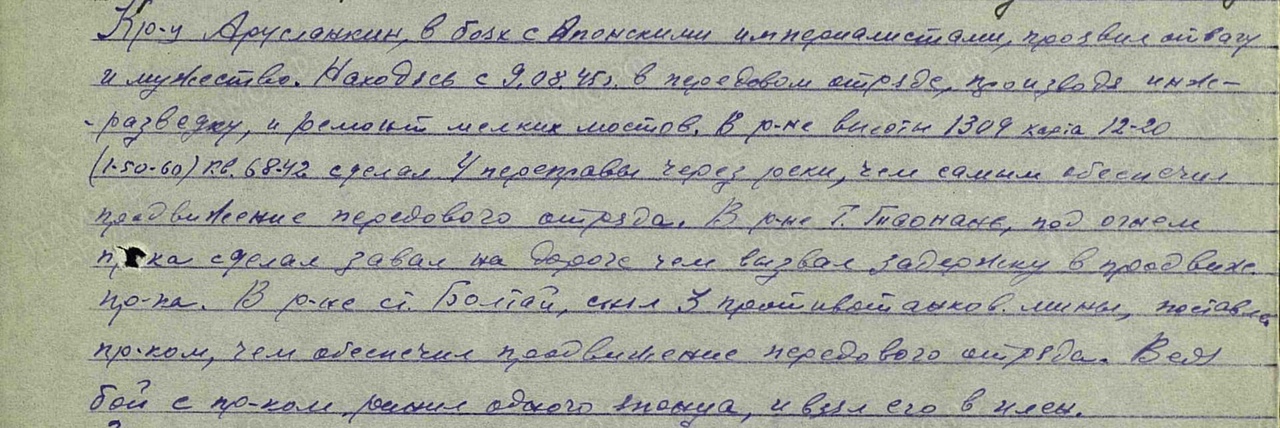 Кр-ц Арусланкин, в боях с Японскими империалистами, проявил отвагу
и мужество. Находясь с 9.08.45г. в передовом отряде, производя инж-
-разведку, и ремонт мелких мостов. В р-не высоты 1309 карта 12-20
(1-50-60) кв. 6842 сделал 4 переправы через реки, чем самым обеспечил
продвижение передового отряда. В р-не г. Таонань, под огнем
пр-ка сделал завал на дороге чем вызвал задержку в продвиж.
пр-ка. В р-не ст. Болтай, снял 3 противотанков. мины, поставл
пр-ком, чем обеспечил продвижение передового отряда. Ведя
бой с пр-ком ранил одного японца, и взял его в плен.